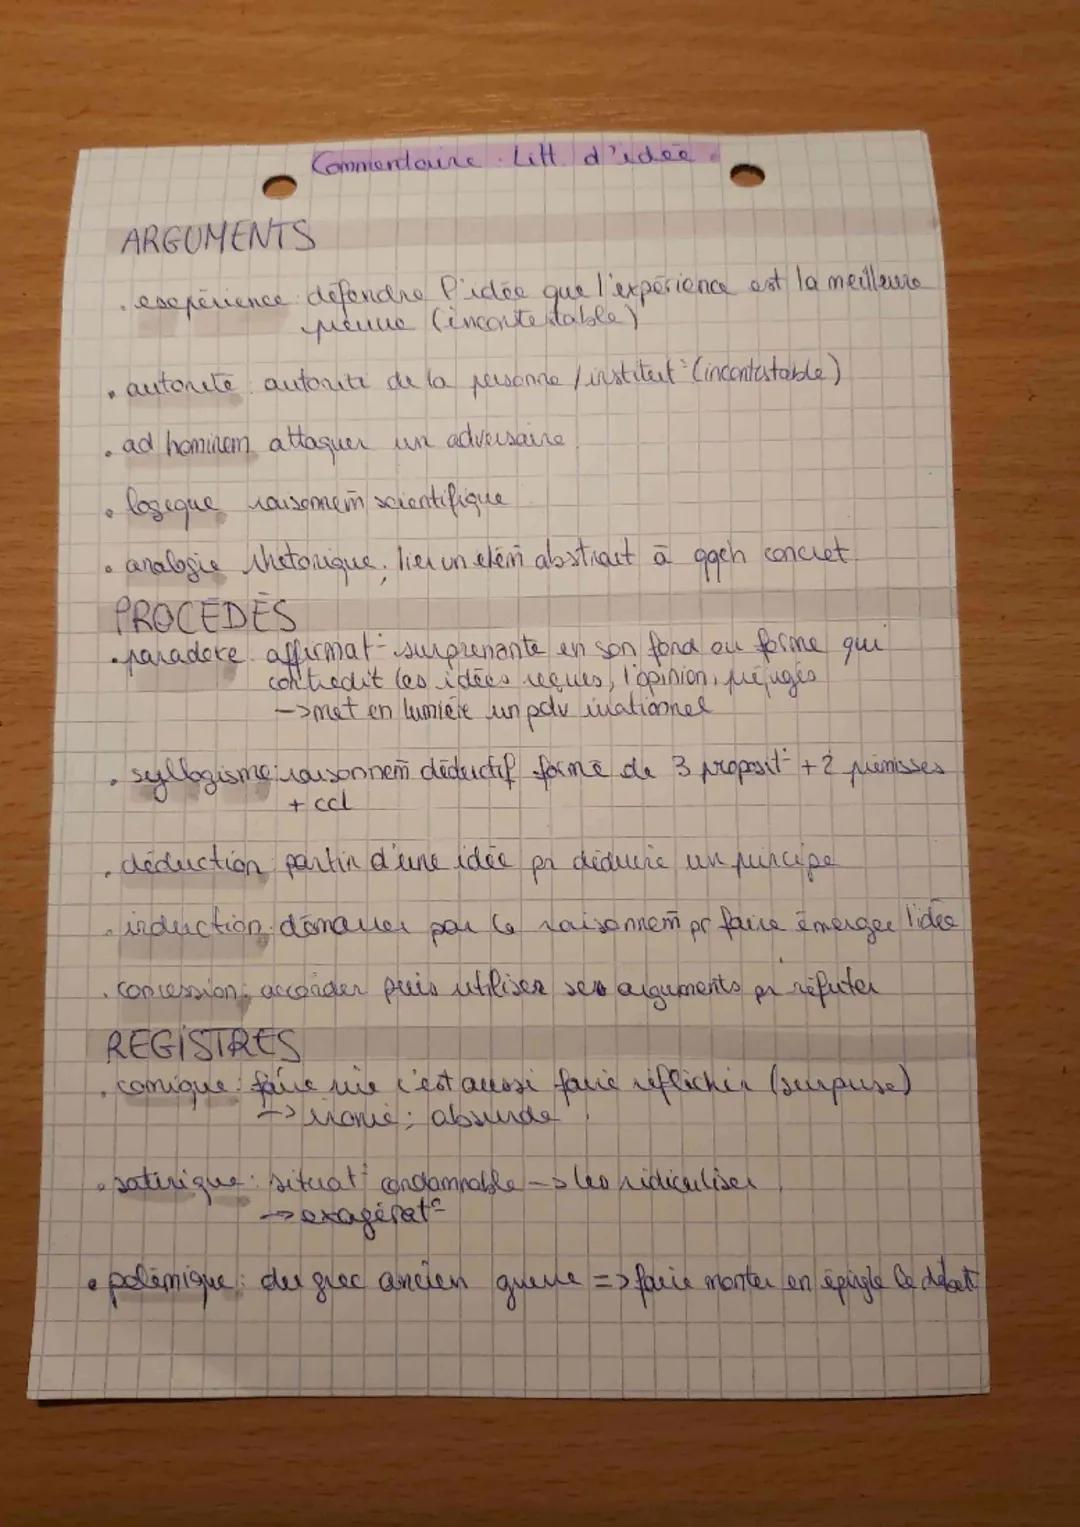 Commentaire Litt. d'idée
ARGUMENTS
. expérience: défendre l'idée que l'expérience est la meilleure
preuve (incontestable)
. autorité: autorité de la personne / institut° (incontestable)
. ad hominem attaquer un adversaire
. logique raisonnem̄ scientifique
. analogie rhétorique: lier un élém̄ abstrait à qqch concret
PROCÉDÉS
. paradoxe affirmat° surprenante en son fond ou forme qui
contredit les idées reçues, l'opinion, préjugés
-> met en lumière un pdv irationnel
. syllogisme: raisonnem̄ déductif formé de 3 proposit° + 2 prémisses
+ ccl
. déduction: partir d'une idée pr déduire un principe
. induction: démarrer par le raisonnem̄ pr faire émerger l'idée
. concession: accorder puis utiliser ses arguments pr réfuter
REGISTRES
. comique: faire rire c'est aussi faire réfléchir (surprise)
-> ironie; absurde
. satirique: situat° condamnable -> les ridiculiser
-> exagérat°
. polémique: du grec ancien guerre => faire monter en épingle le débat